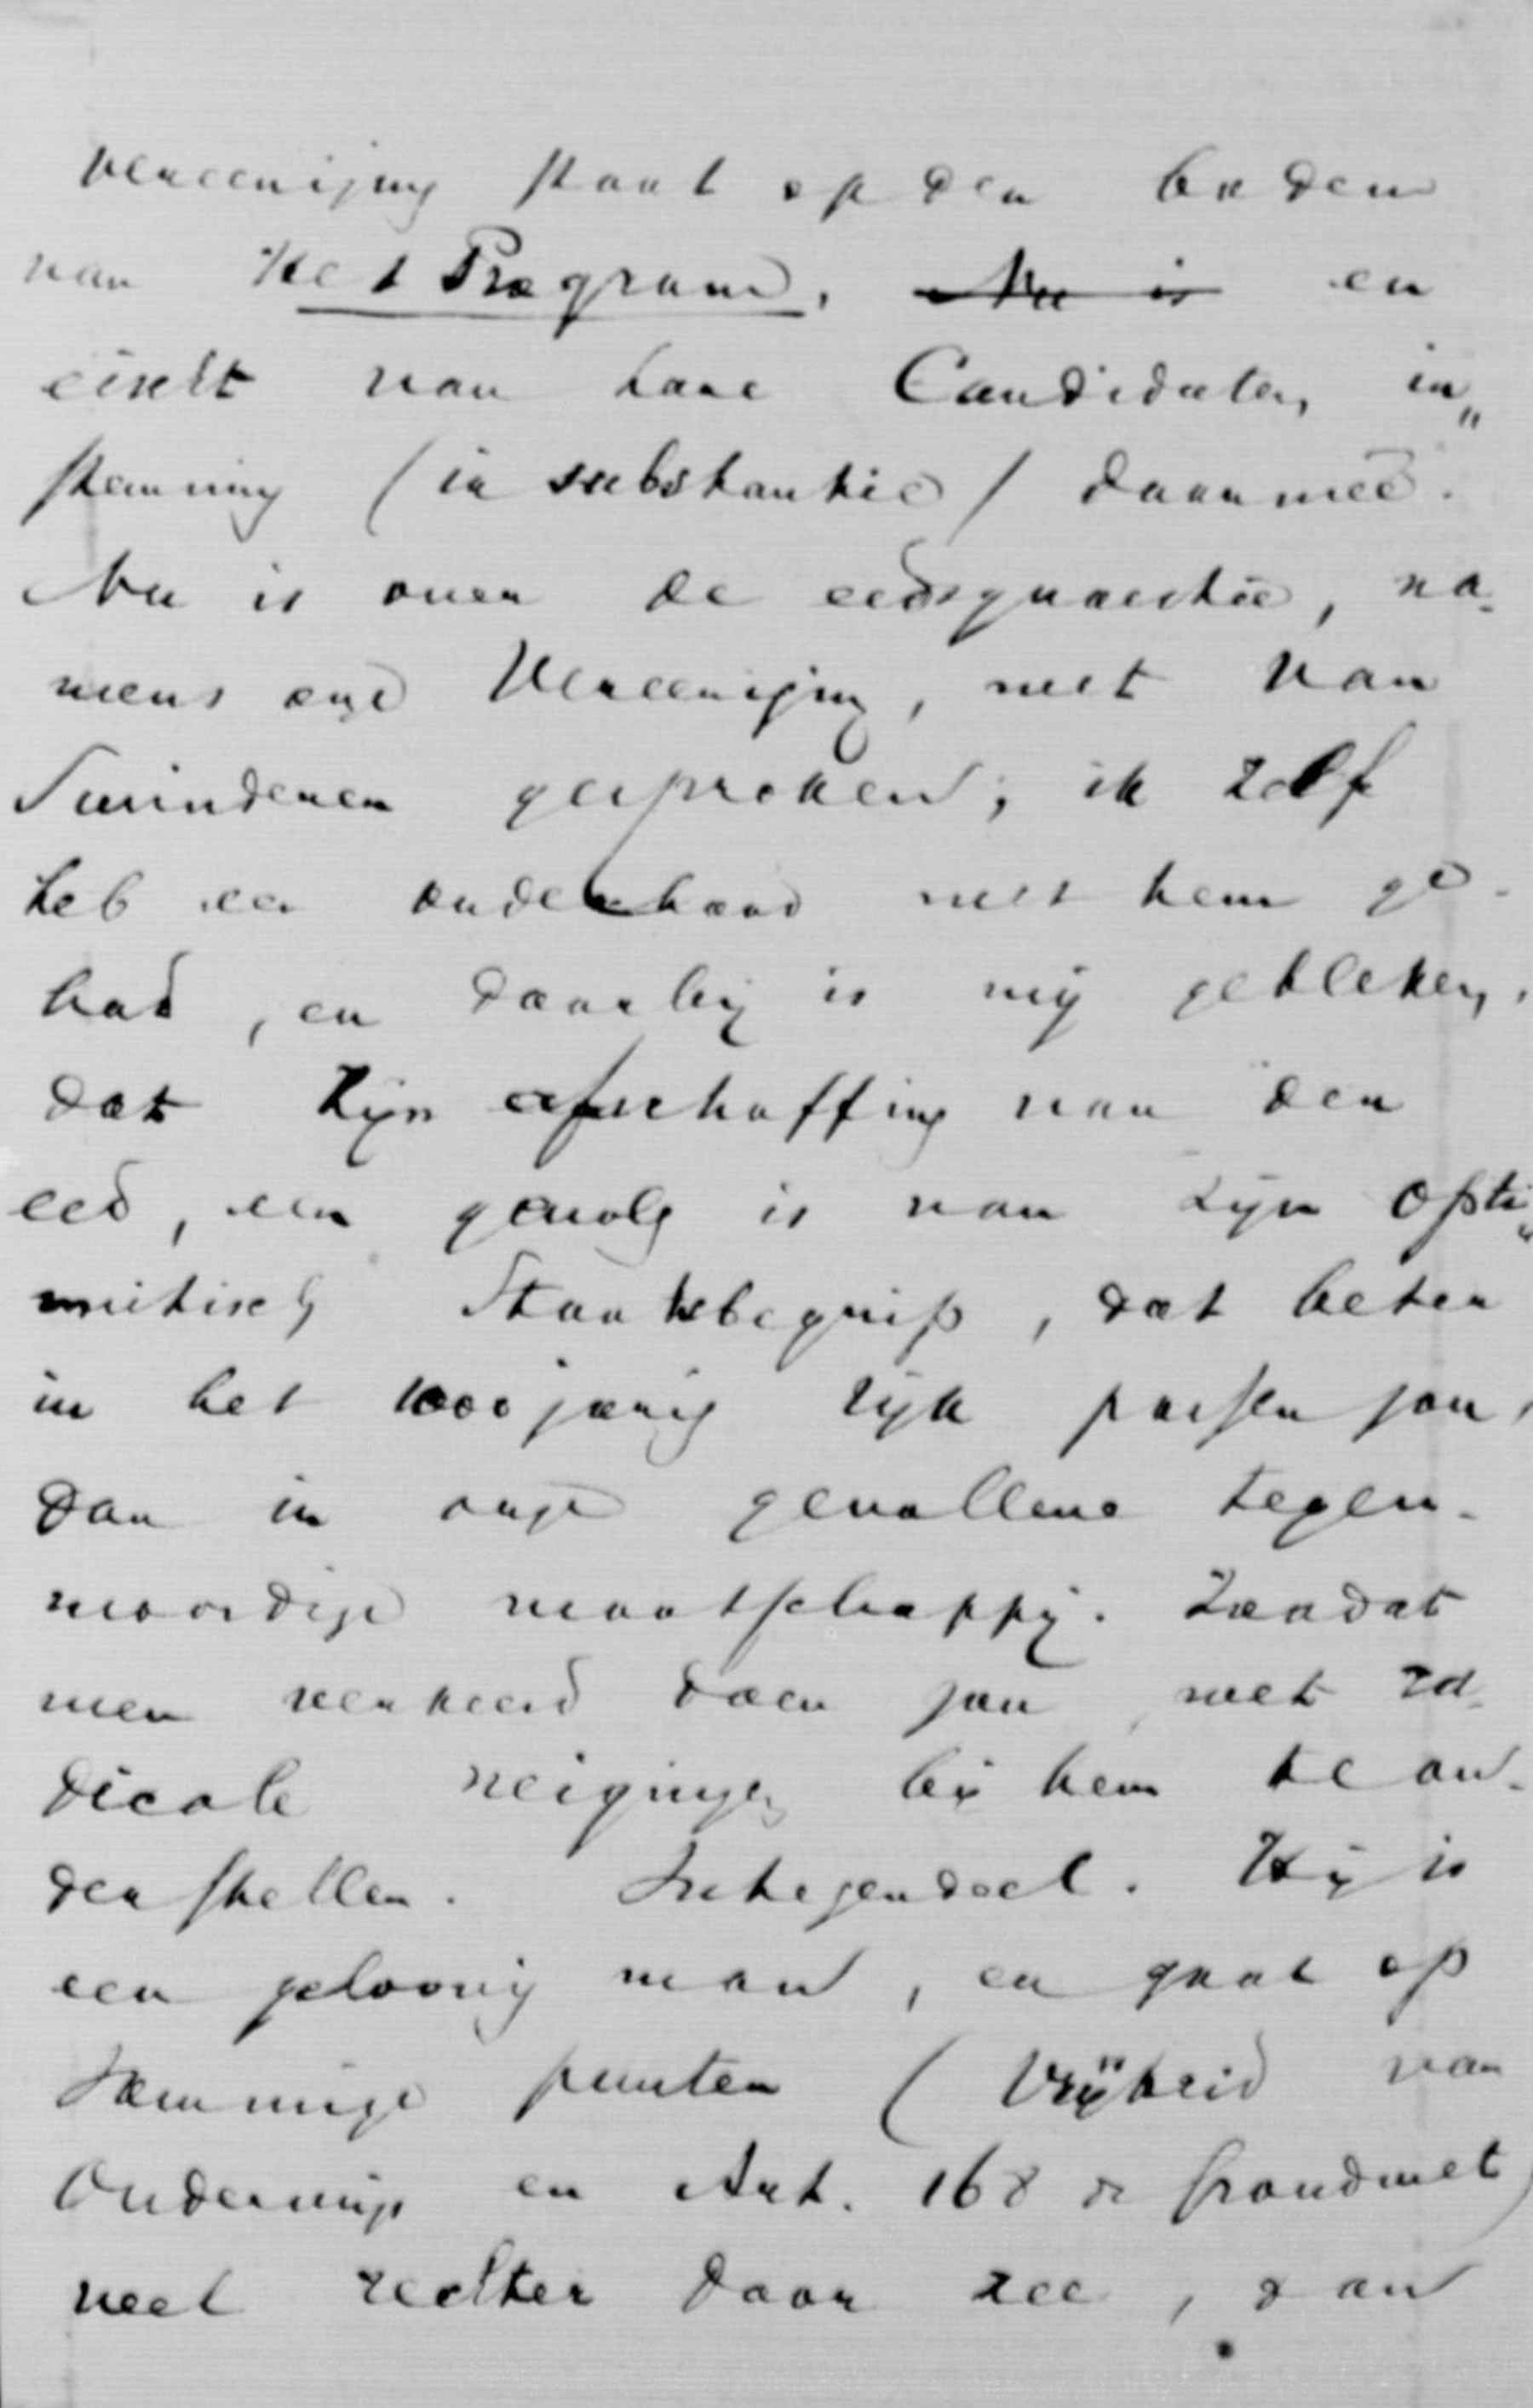 vereeniging staat op den bodem
van Het Program, ~~Nu is~~ en
eischt van hare Candidaten in„
stemming (in substantie) daarmeê.
Nu is over de eedsquaestie, na-
mens onze Vereeniging, met Van
Swinderen gesproken; ik zelf
heb een onderhoud met hem ge-
had, en daarbij is mij gebleken,
dat zijn afschaffing van den
eed, een gevolg is van zijn opti„
mistisch Staatsbegrip, dat beter
in het 1000jarig rijk passen zou,
dan in onze gevallene tegen-
woordige maatschappij. Zoodat
men verkeerd doen zou met ra-
dicale neigingen bij hem te on-
derstellen. Integendeel. Hij is
een geloovig man, en gaat op
sommige punten (Vrijheid van
Onderwijs en Art. 168 de Grondwet)
veel rechter door zee, dan